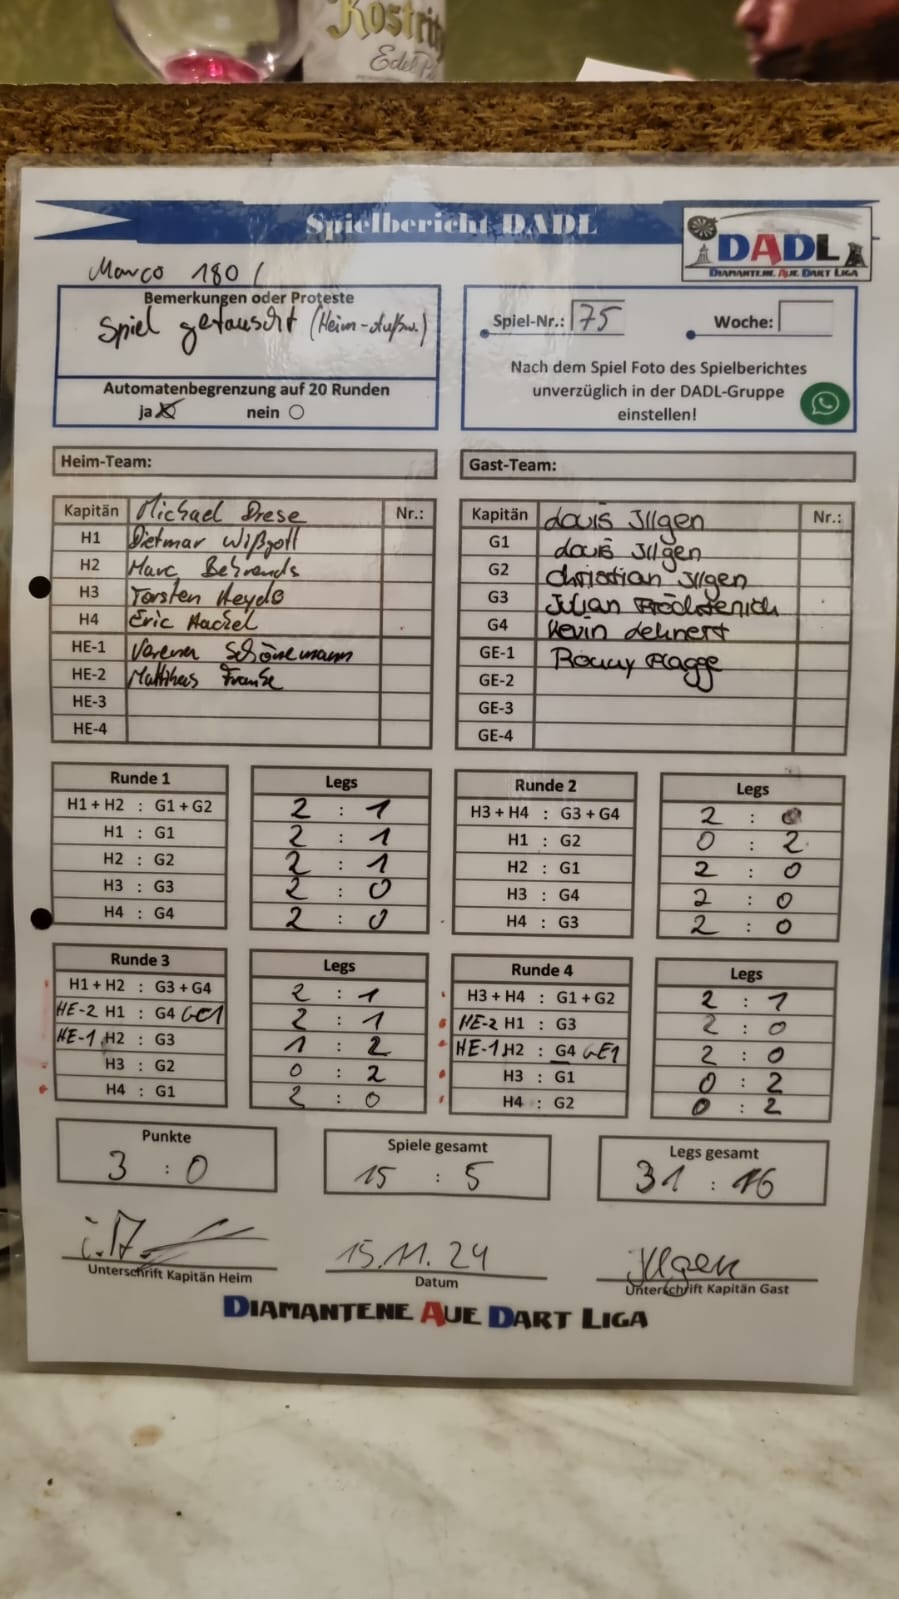 Kostri
Edel P
Spielbericht DADL
DADL
Diamantene Aue Dart Liga
Marco 180 /
Bemerkungen oder Proteste
Spiel getauscht (Heim-Ausw.)
Automatenbegrenzung auf 20 Runden
ja nein
Spiel-Nr.: 75 Woche:
Nach dem Spiel Foto des Spielberichtes
unverzüglich in der DADL-Gruppe
einstellen!
Heim-Team:
Gast-Team:
Kapitän Michael Drese Nr.:
H1 Dietmar Wißgott
H2 Marc Behrends
H3 Torsten Heyde
H4 Eric Hackel
HE-1 Verena Schönemann
HE-2 Matthias Franke
HE-3
HE-4
Kapitän Louis Jllgen Nr.:
G1 Louis Jllgen
G2 Christian Jllgen
G3 Julian
G4 Kevin Lehnert
GE-1 Ronny Plagge
GE-2
GE-3
GE-4
Runde 1 Legs
H1 + H2 : G1 + G2 2 : 1
H1 : G1 2 : 1
H2 : G2 2 : 1
H3 : G3 2 : 0
H4 : G4 2 : 0
Runde 2 Legs
H3 + H4 : G3 + G4 2 : 0
H1 : G2 0 : 2
H2 : G1 2 : 0
H3 : G4 2 : 0
H4 : G3 2 : 0
Runde 3 Legs
H1 + H2 : G3 + G4 2 : 1
HE-2 H1 : G4 GE1 2 : 1
HE-1 H2 : G3 1 : 2
H3 : G2 0 : 2
H4 : G1 2 : 0
Runde 4 Legs
H3 + H4 : G1 + G2 2 : 1
HE-2 H1 : G3 2 : 0
HE-1 H2 : G4 GE1 2 : 0
H3 : G1 0 : 2
H4 : G2 0 : 2
Punkte
3 : 0
Spiele gesamt
15 : 5
Legs gesamt
31 : 16
i.A.
Unterschrift Kapitän Heim
15.11.24
Datum
Jllgen
Unterschrift Kapitän Gast
Diamantene Aue Dart Liga